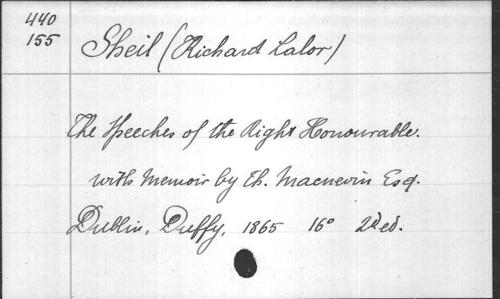 440
155
Sheil (Richard Lalor)
The Speeches of the Right Honourable.
with Memoir by Th. Macnevin Esq.
Dublin, Duffy, 1865 16° 2d ed.